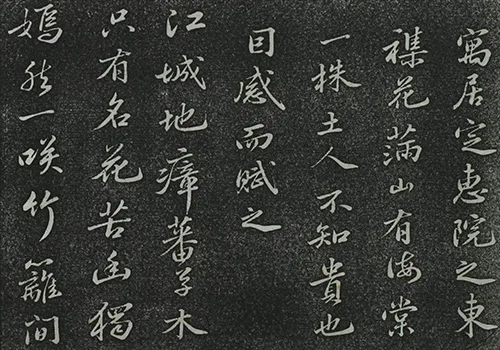 寓居定惠院之東
襍花蒲山有海棠
一株土人不知貴也
因感而賦之
江城地瘴蕃草木
只有名花苦幽獨
嫣然一咲竹籬間